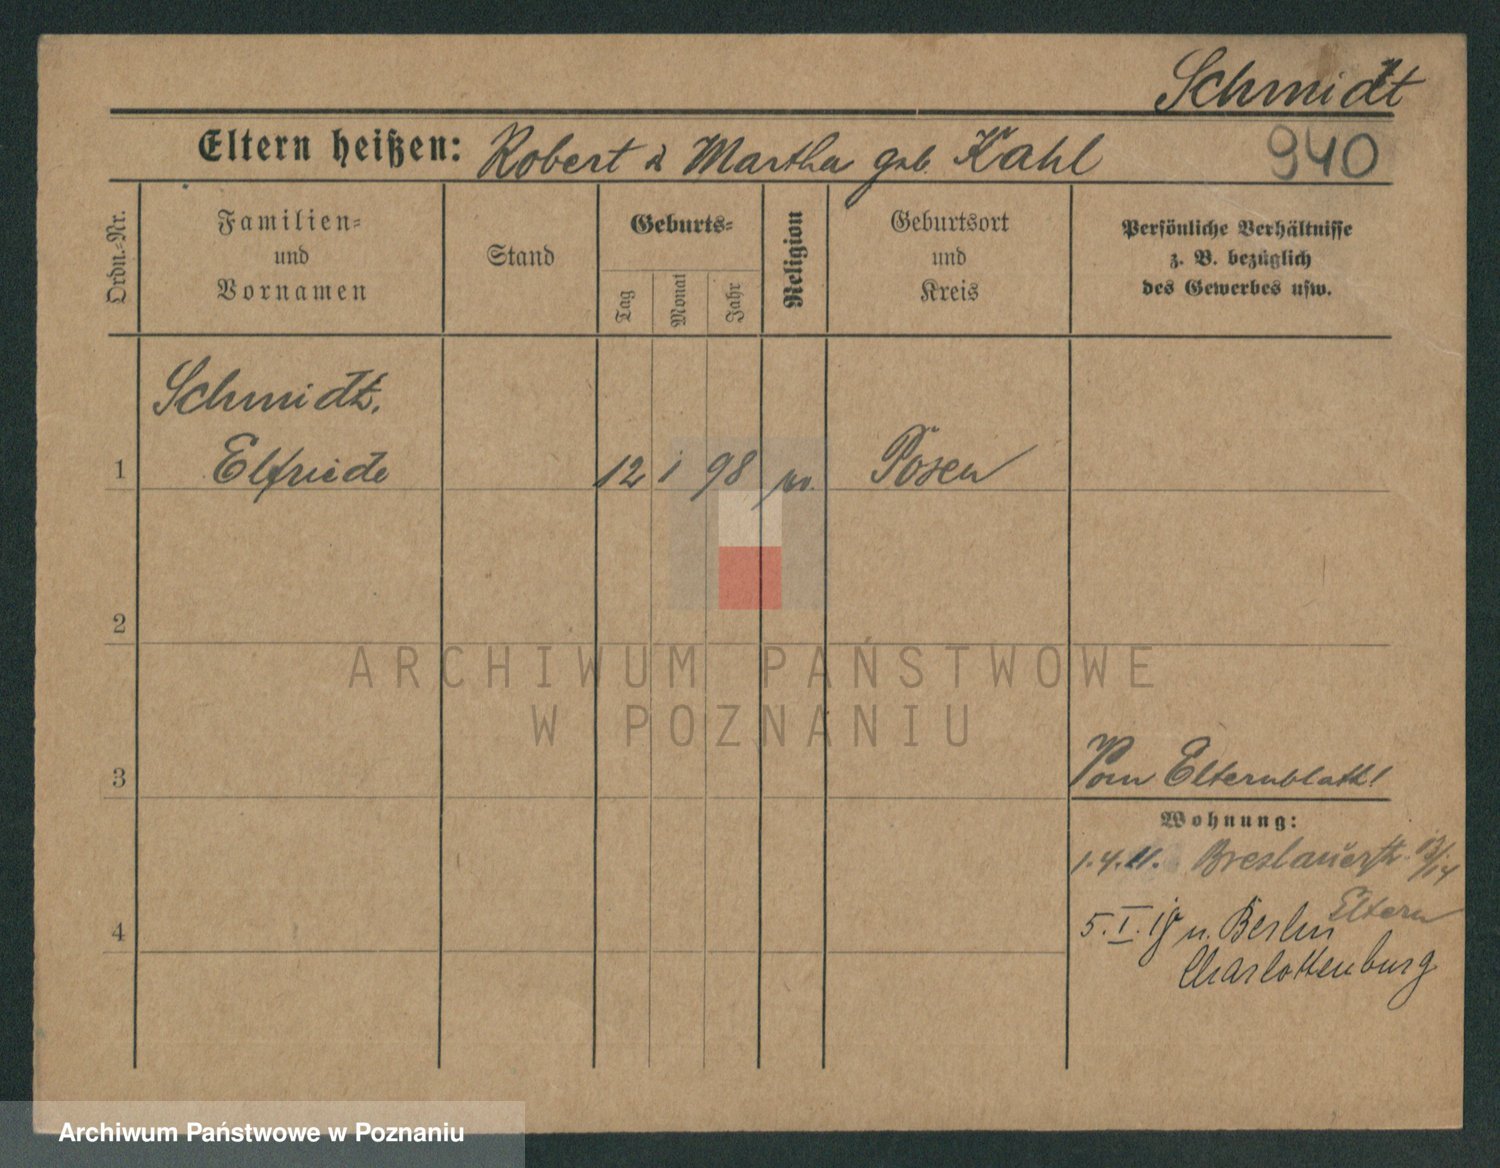 Schmidt
Eltern heißen: Robert & Martha geb. Kahl
940
Ordn.-Nr.
Familien-
und
Vornamen
Stand
Geburts-
Tag
Monat
Jahr
Religion
Geburtsort
und
Kreis
Persönliche Verhältnisse
z. B. bezüglich
des Gewerbes usw.
Schmidt,
1 Elfriede 12 1 98 Posen
2
ARCHIWUM PAŃSTWOWE
W POZNANIU
3
Vom Elternblatt!
Wohnung:
1.4.11. Breslauerstr. 13/14
Eltern
4
5.I. n. Berlin
Charlottenburg
Archiwum Państwowe w Poznaniu